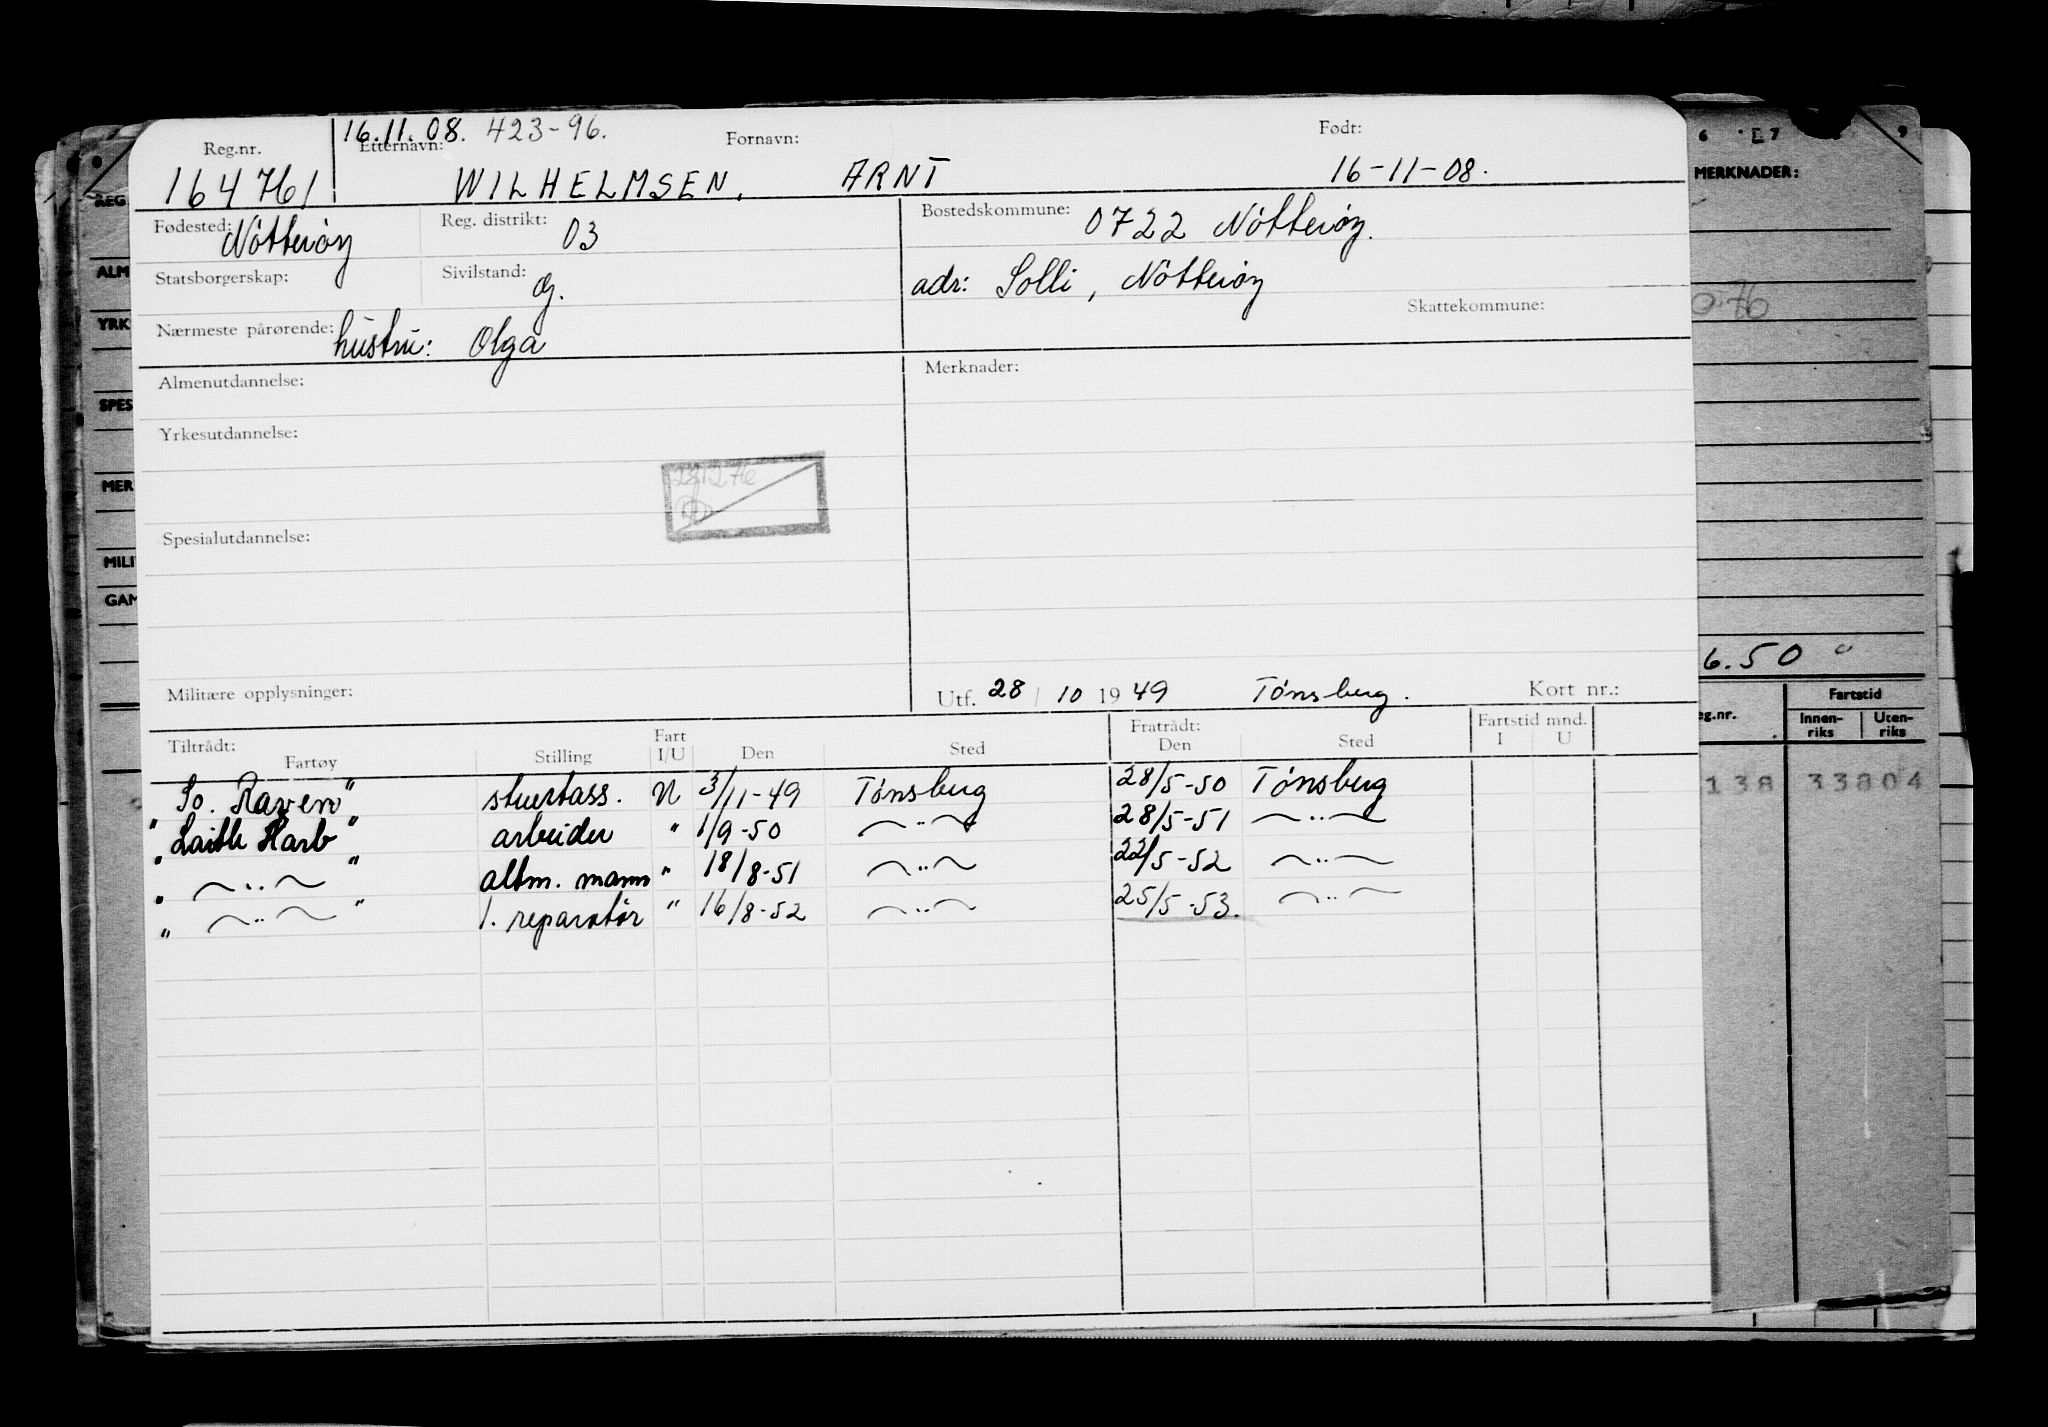 16.11.08. 423-96.
Reg.nr. Etternavn: Fornavn: Født:
164761 WILHELMSEN, ARNT 16-11-08.
Fødested: Nötteröy Reg. distrikt: 03 Bostedskommune: 0722 Nötteröy.
Statsborgerskap: Sivilstand: g. adr: Solli, Nötteröy
Skattekommune:
Nærmeste pårørende: hustru: Olga
Almenutdannelse: Merknader:
Yrkesutdannelse:
Spesialutdannelse:
Militære opplysninger: Utf. 28/10 1949 Tönsberg. Kort nr.:
Tiltrådt: Fart Fratrådt: Fartstid mnd.
Fartøy Stilling I/U Den Sted Den Sted I U
"So. Raven" N 3/11-49 Tönsberg 28/5-50 Tönsberg
" Karb" arbeider " 1/9-50 ~¨~ 28/5-51 ~¨~
" ~¨~ " altm. mann " 18/8-51 ~¨~ 22/5-52 ~¨~
" ~¨~ " 1. reparatör " 16/8-52 ~¨~ 25/5-53. ~¨~
6 7 9
MERKNADER:
REG.
ALM
YRK
SPES
MER
MILI
GAM
6.50
g.nr. Fartstid
Innen-riks Uten-riks
138 33804